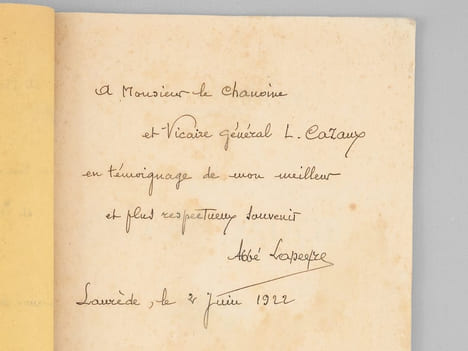 A Monsieur le Chanoine
et Vicaire général L. Cazaux
en témoignage de mon meilleur
et plus respectueux souvenir
Abbé Lapeyre
Laurède, le 2 Juin 1922